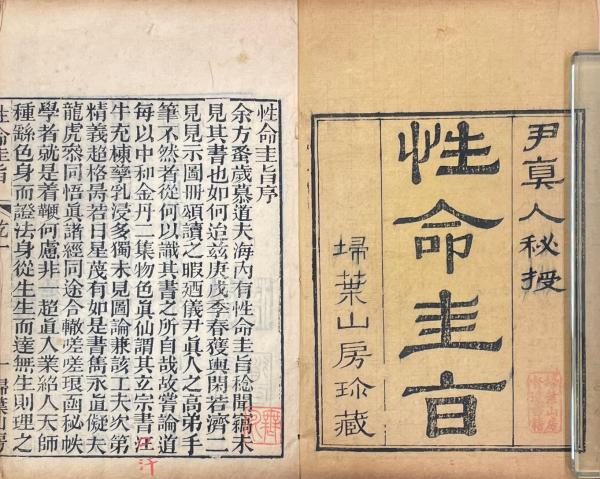 尹真人秘授
性命圭旨
埽葉山房珍藏
性命圭旨序
余方蚤歲慕道夫海內有性命圭旨稔聞竊未
見其書也如何迨茲庚戌季春獲輿閑若濟二
見見示圖冊頌讀之暇廼儀尹眞人之高弟手
筆不然者從何以識其書之所自哉故嘗論道
每以中和金丹二集物色眞仙謂其立宗書汪
牛充棟孳乳浸多獨未見圖論兼該工夫次第
精義超格昺若日星茂有如是書雋永直儗夫
龍虎叅同悟眞諸經同途合轍嗟嗟琅函秘帙
學者就是着鞭何慮非一超眞人業紹人天師
種繇色身而證法身從生生而達無生則理之
性命圭旨 一 埽葉山房